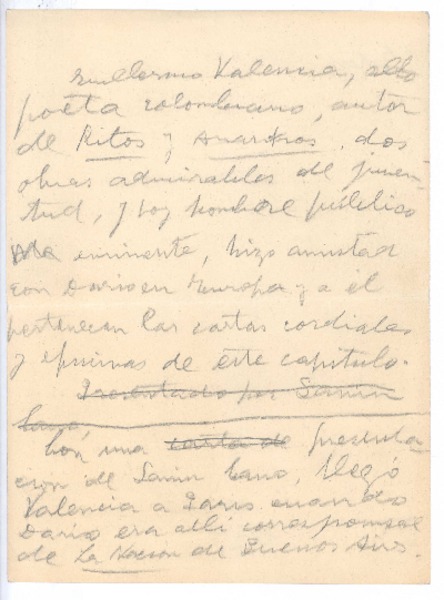 Guillermo Valencia, alto
poeta colombiano, autor
de Ritos y Anarkos, dos
obras admirables de juven-
tud, y hoy hombre público
eminente, hizo amistad
con Darío en Europa y a él
pertenecen las cartas cordiales
y de este capítulo.
Presentado por Sanín
Cano,
Con una carta de presenta-
cion de Sanin Cano, llegó
Valencia a Paris cuando
Dario era allí corresponsal
de La Nacion de Buenos Aires.